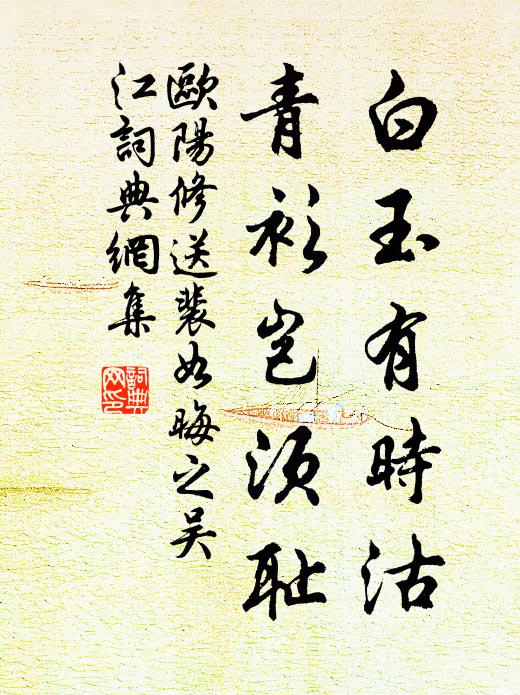 白玉有時沽
青衫岂須耻
歐陽修送裴如晦之吴
江詞典網集
詞典
网印